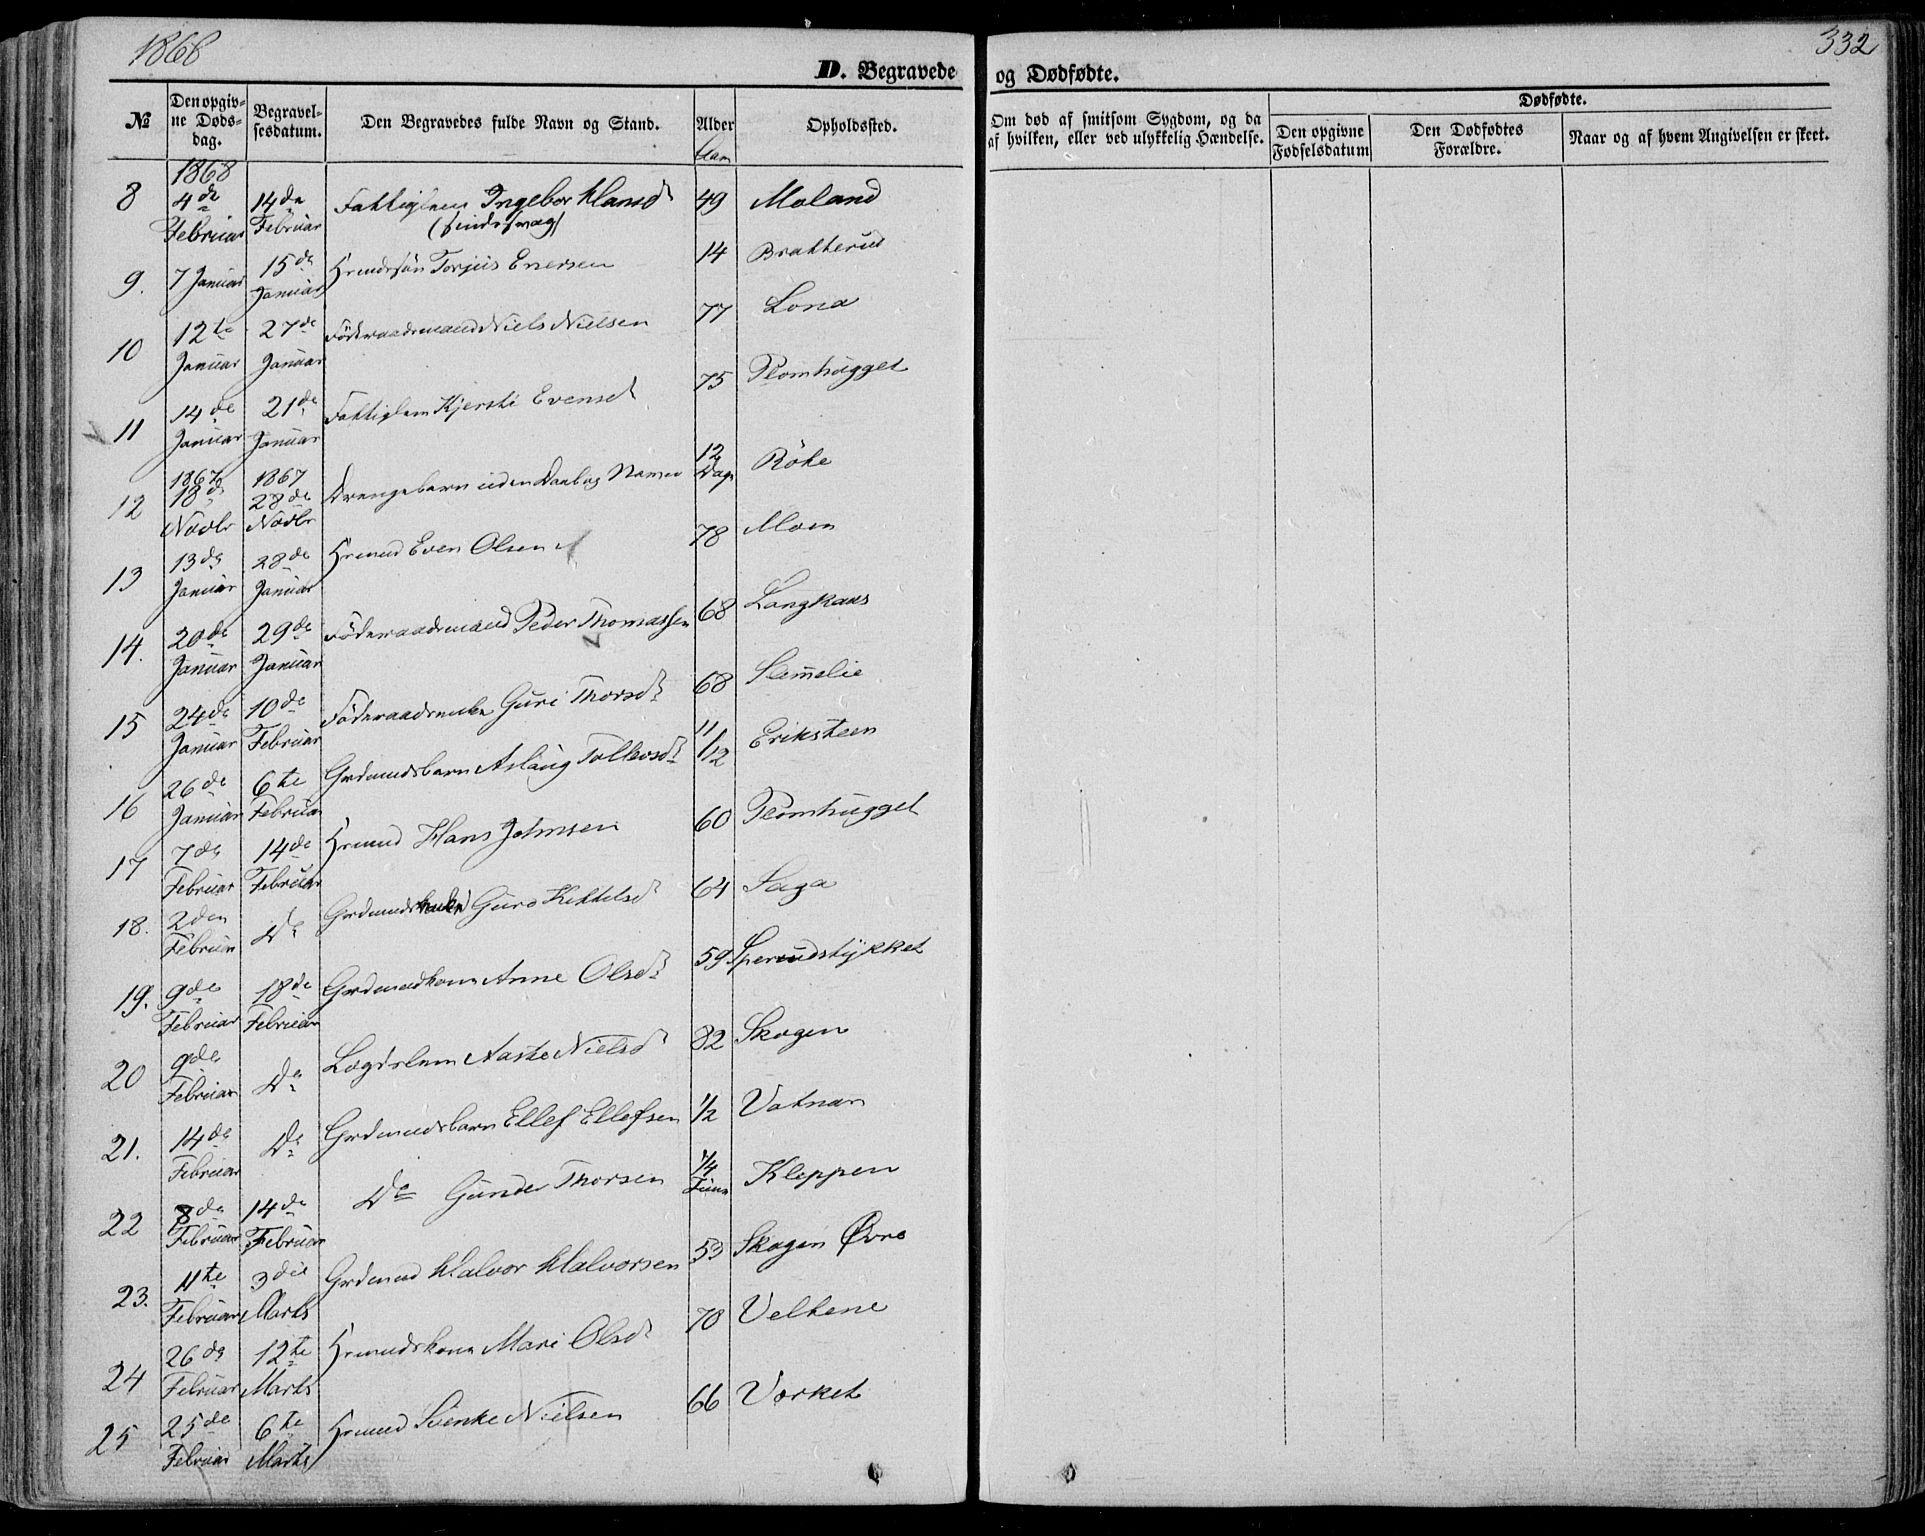 1868
332
D. Begravede og Dødfødte.
№ | Den opgivne Dødsdag. | Begravelsesdatum. | Den Begravedes fulde Navn og Stand. | Alder | Opholdssted. | Om død af smitsom Sygdom, og da af hvilken, eller ved ulykkelig Hændelse. | Dødfødte. Den opgivne Fødselsdatum | Den Dødfødtes Forældre. | Naar og af hvem Angivelsen er skeet.
1868
8 | 4de Februar | 14de Februar | Fattiglem Ingebor Hansd (sindssvag) | 49 | Moland
9. | 7 Januar | 15de Januar | Torjus Enersen | 14 | Brakterud
10 | 12te Januar | 27de Januar | Föderaadsmand Niels Nielsen | 77 | Lona
11 | 14de Januar | 21de Januar | Fattiglem Kjersti Evensd | 75 | Plomhugget
12 | 1867 18de Novbr | 1867 28de Novbr | Drengebarn uden Daab og Navn | 12 Dage | Röke
13 | 13de Januar | 28de Januar | Hrmnd Even Olsen | 78 | Moen
14. | 20de Januar | 29de Januar | Föderaadsmand Peder Thomassen | 68 | Langkaas
15 | 24de Januar | 10de Februar | Guri Thorsd | 68
16 | 26de Januar | 6te Februar | Grdmndsbarn Aslaug Tollevsd | 11/12 | Eriksteen
17 | 7de Februar | 14de Februar | Hrmnd Hans Johnsen | 60 | Plomhugget
18. | 2den Februar | Do | Guro Kettelsd | 64 | Saga
19. | 9de Februar | 18de Februar | Grdmndkone Anne Olsd | 59 | Sperudstykket
20 | 9de Februar | Do | Lægdslem Aaste Nielsd | 82 | Skogen
21. | 14de Februar | Do | Grdmndsbarn Ellef Ellefsen | 1/2 | Vatnar
22 | 8de Februar | 14de Februar | Do Gunder Thorsen | 1/4 | Kleppen
23. | 11te Februar | 3die Marts | Grdmnd Halvor Halvorsen | 53 | Skogen Øvre
24 | 26de Februar | 12te Marts | Hrmndskone Mari Olsd | 70 | Veltene
25 | 25de Februar | 6te Marts | Hrmnd Svenke Nielsen | 66 | Værket